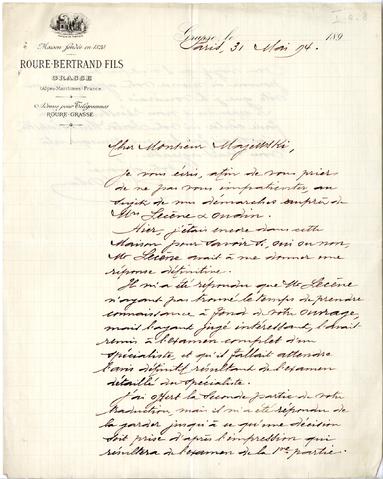 I. 9. 8
Grasse, le 189
Paris, 31 Mai 94.
Maison fondée en 1820
ROURE-BERTRAND FILS
GRASSE
(Alpes-Maritimes) France
Adresse pour Télégrammes
ROURE-GRASSE
Cher Monsieur Majewski,
Je vous écris, afin de vous prier
de ne pas vous impatienter au
sujet de mes démarches auprès de
Mrs Lecène & Oudin.
Hier, j'étais encore dans cette
Maison pour savoir si, oui ou non,
Mr Lecène avait à me donner une
réponse définitive.
Il m'a été répondu que Mr Lecène
n'ayant pas trouvé le temps de prendre
connaissance à fond de votre ouvrage,
mais l'ayant jugé intéressant, l'avait
remis à l'examen complet d'un
spécialiste, et qu'il fallait attendre
l'avis définitif résultant de l'examen
détaillé du spécialiste.
J'ai offert la seconde partie de votre
traduction, mais il m'a été répondu de
la garder jusqu'à ce qu'une décision
soit prise d'après l'impression qui
résultera de l'examen de la 1re partie.